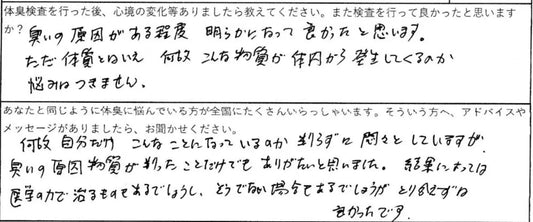 体臭検査を行った後、心境の変化等ありましたら教えてください。また検査を行って良かったと思います
か？ 臭いの原因がある程度 明らかになって 良かったと思います。
ただ 体質とはいえ 何故 こんな物質が 体内から 発生してくるのか
悩みはつきません。
あなたと同じように体臭に悩んでいる方が全国にたくさんいらっしゃいます。そういう方へ、アドバイスや
メッセージがありましたら、お聞かせください。
何故 自分だけ こんなことになっているのか 判らずに 悶々としていますが、
臭いの原因物質が判ったことだけでも ありがたいと思いました。 結果によっては
医学の力で治るものもあるでしょうし、どうでない場合もあるでしょうが とりあえずは
良かったです。